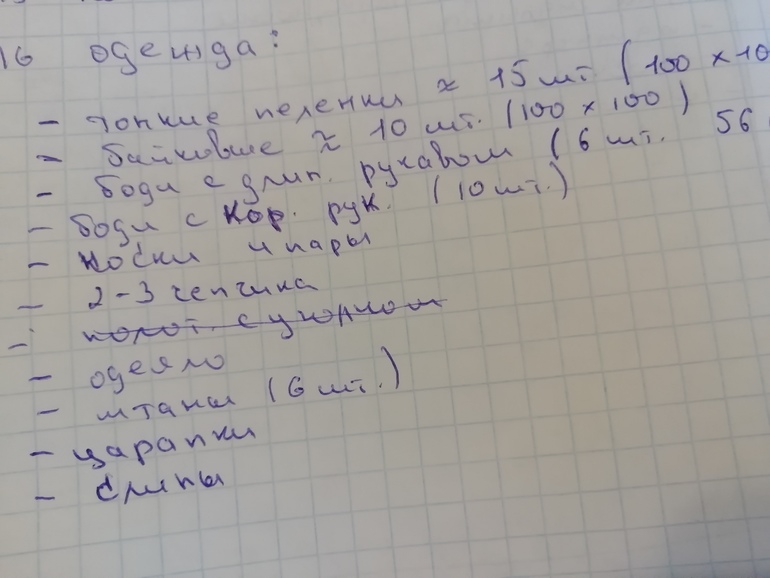 16 одежда:
- тонкие пеленки ≈ 15 шт (100 x 10
- байковые ≈ 10 шт. (100 x 100)
- боди с длин. рукавом (6 шт. 56
- боди с кор. рук. (10 шт.)
- носки 4 пары
- 2-3 чепчика
- полот. с уголком
- одеяло
- штаны (6 шт.)
- царапки
- слипы